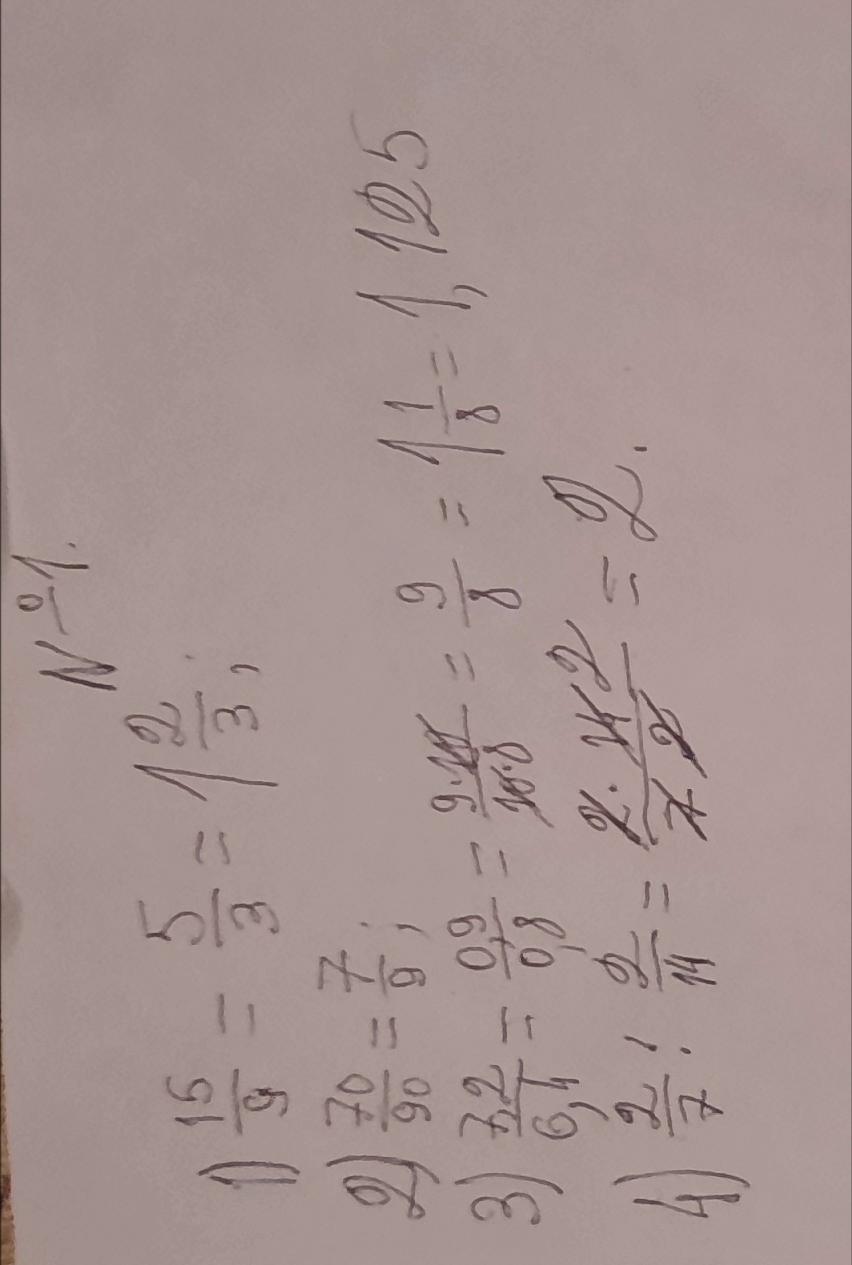 №1.
1) 15/9 = 5/3 = 1 2/3;
2) 70/90 = 7/9;
3) 7,2/6,4 = 0,9/0,8 = 9·10/10·8 = 9/8 = 1 1/8 = 1,125
4) 2/7 : 2/14 = 2·14 2/7 2 = 2.